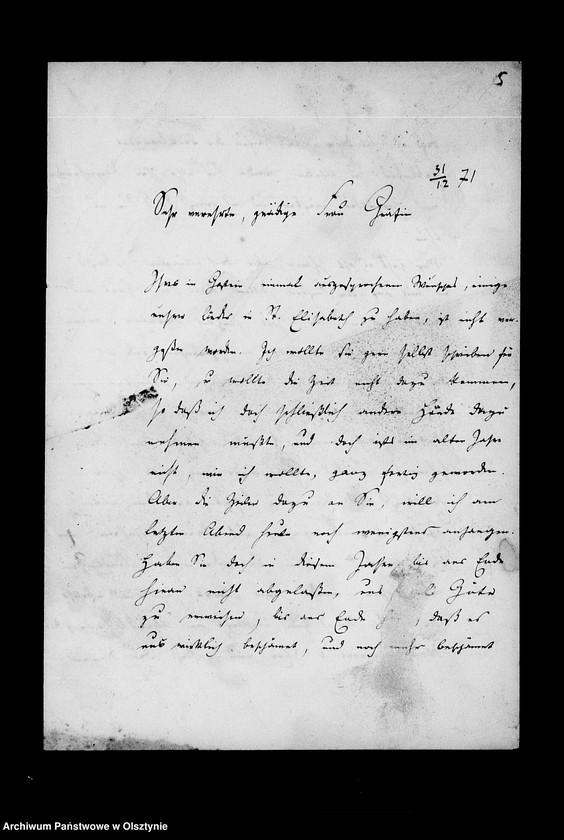 5
31/12 71
Sehr verehrte, gnädige Frau Gräfin
Ihres in Gastein einmal ausgesprochenen Wunsches, einige
unsrer Lieder in St. Elisabeth zu haben, ist nicht ver-
geßen worden. Ich wollte sie gern selbst schreiben für
Sie, es wollte die Zeit nicht dazu kommen,
so daß ich doch schließlich andere Hände dazu
nehmen mußte, und doch ists im alten Jahre
nicht, wie ich wollte, ganz fertig geworden.
Aber die Zeilen dazu an Sie, will ich am
letzten Abend heute noch wenigstens anfangen.
Haben Sie doch in diesem Jahre bis ans Ende
hieran nicht abgelaßen, uns Güte
zu erweisen, bis ans Ende, daß es
uns wirklich beschämet, und noch mehr beschämet
Archiwum Państwowe w Olsztynie